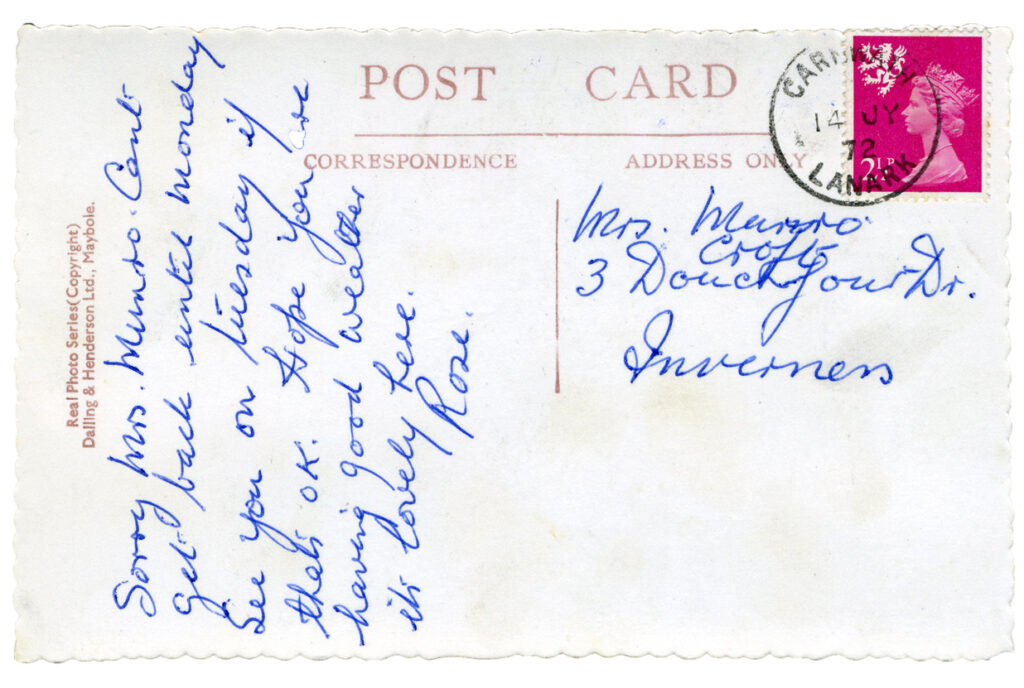 POST CARD
CORRESPONDENCE
ADDRESS ONLY
CARNWATH
14 JY
72
LANARK
2½P
Sorry Mrs. Munro. Cant
get back until Monday
See you on Tuesday if
thats OK. Hope you are
having good weather
its lovely here.
Rose.
Mrs. Munro
Croft
3 Douchfour Dr.
Inverness
Real Photo Series (Copyright)
Dalling & Henderson Ltd., Maybole.